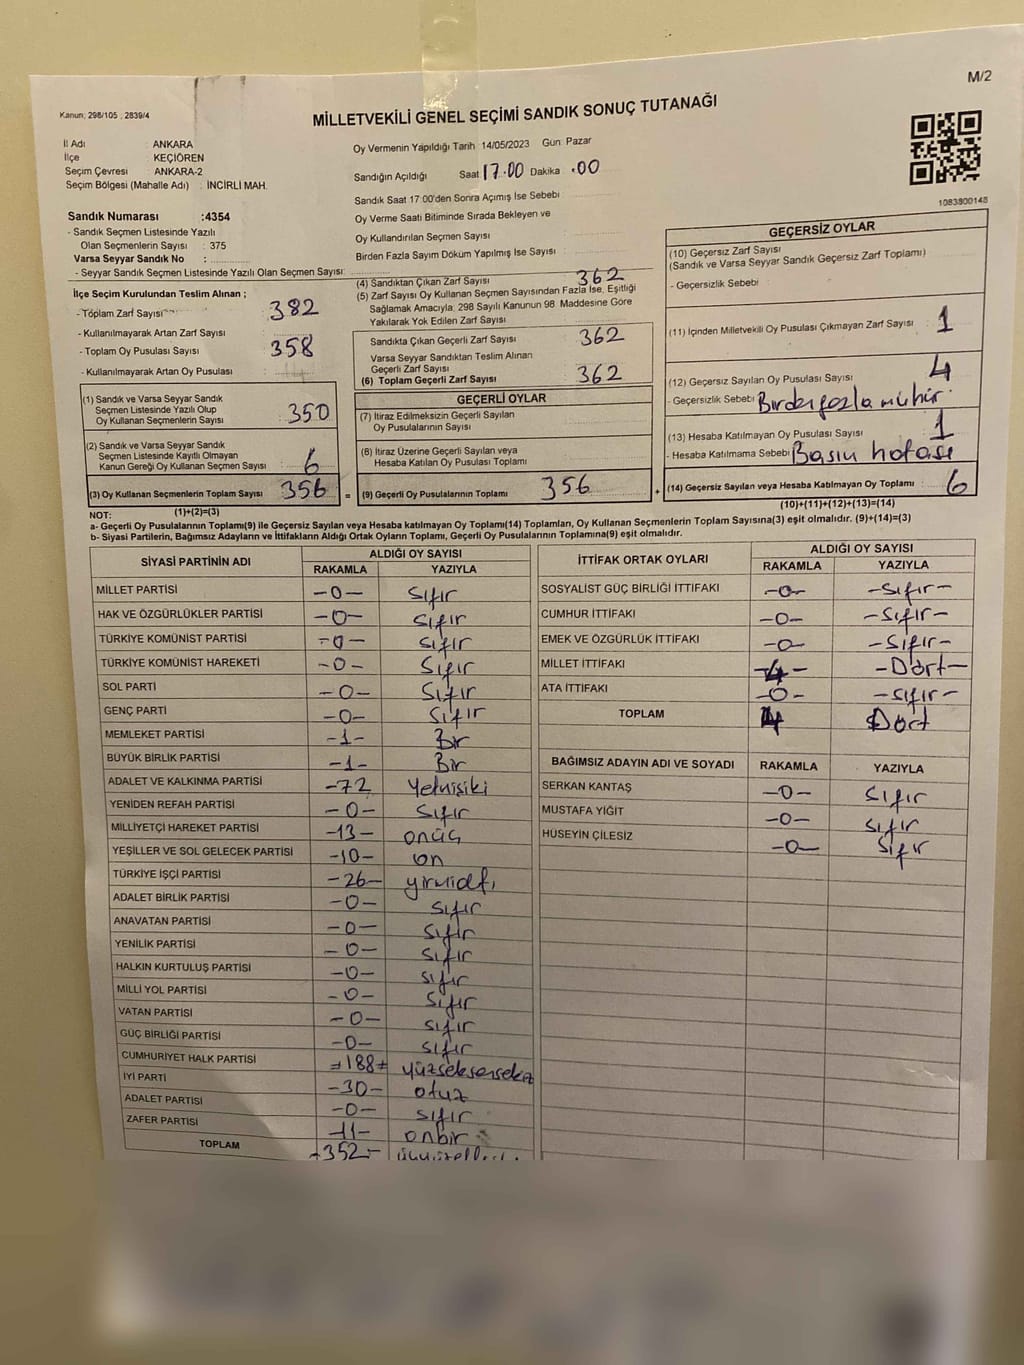 M/2
Kanun; 298/105 , 2839/4
MİLLETVEKİLİ GENEL SEÇİMİ SANDIK SONUÇ TUTANAĞI
İl Adı : ANKARA
İlçe : KEÇİÖREN
Seçim Çevresi : ANKARA-2
Seçim Bölgesi (Mahalle Adı) : İNCİRLİ MAH.
Sandık Numarası :4354
- Sandık Seçmen Listesinde Yazılı
Olan Seçmenlerin Sayısı : 375
Varsa Seyyar Sandık No :
- Seyyar Sandık Seçmen Listesinde Yazılı Olan Seçmen Sayısı:
İlçe Seçim Kurulundan Teslim Alınan ;
- Toplam Zarf Sayısı 382
- Kullanılmayarak Artan Zarf Sayısı :
- Toplam Oy Pusulası Sayısı 358
- Kullanılmayarak Artan Oy Pusulası :
(1) Sandık ve Varsa Seyyar Sandık
Seçmen Listesinde Yazılı Olup
Oy Kullanan Seçmenlerin Sayısı : 350
(2) Sandık ve Varsa Seyyar Sandık
Seçmen Listesinde Kayıtlı Olmayan
Kanun Gereği Oy Kullanan Seçmen Sayısı : 6
(3) Oy Kullanan Seçmenlerin Toplam Sayısı : 356
Oy Vermenin Yapıldığı Tarih :14/05/2023 Gün: Pazar
Sandığın Açıldığı Saat 17.00 Dakika .00
Sandık Saat 17:00'den Sonra Açımış İse Sebebi
Oy Verme Saati Bitiminde Sırada Bekleyen ve
Oy Kullandırılan Seçmen Sayısı
Birden Fazla Sayım Döküm Yapılmış İse Sayısı :
(4) Sandıktan Çıkan Zarf Sayısı : 362
(5) Zarf Sayısı Oy Kullanan Seçmen Sayısından Fazla İse, Eşitliği
Sağlamak Amacıyla; 298 Sayılı Kanunun 98. Maddesine Göre
Yakılarak Yok Edilen Zarf Sayısı
Sandıkta Çıkan Geçerli Zarf Sayısı : 362
Varsa Seyyar Sandıktan Teslim Alınan
Geçerli Zarf Sayısı
(6) Toplam Geçerli Zarf Sayısı : 362
GEÇERLİ OYLAR
(7) İtiraz Edilmeksizin Geçerli Sayılan
Oy Pusulalarının Sayısı
(8) İtiraz Üzerine Geçerli Sayılan veya
Hesaba Katılan Oy Pusulası Toplamı
= (9) Geçerli Oy Pusulalarının Toplamı : 356
1083800148
GEÇERSİZ OYLAR
(10) Geçersiz Zarf Sayısı
(Sandık ve Varsa Seyyar Sandık Geçersiz Zarf Toplamı)
- Geçersizlik Sebebi :
(11) İçinden Milletvekili Oy Pusulası Çıkmayan Zarf Sayısı : 1
(12) Geçersiz Sayılan Oy Pusulası Sayısı : 4
- Geçersizlik Sebebi : Birden fazla mühür.
(13) Hesaba Katılmayan Oy Pusulası Sayısı : 1
- Hesaba Katılmama Sebebi: Basım hatası
+ (14) Geçersiz Sayılan veya Hesaba Katılmayan Oy Toplamı : 6
(10)+(11)+(12)+(13)=(14)
NOT: (1)+(2)=(3)
a- Geçerli Oy Pusulalarının Toplamı(9) ile Geçersiz Sayılan veya Hesaba katılmayan Oy Toplamı(14) Toplamları, Oy Kullanan Seçmenlerin Toplam Sayısına(3) eşit olmalıdır. (9)+(14)=(3)
b- Siyasi Partilerin, Bağımsız Adayların ve İttifakların Aldığı Ortak Oyların Toplamı, Geçerli Oy Pusulalarının Toplamına(9) eşit olmalıdır.
SİYASİ PARTİNİN ADI ALDIĞI OY SAYISI
RAKAMLA YAZIYLA
MİLLET PARTİSİ -0- sıfır
HAK VE ÖZGÜRLÜKLER PARTİSİ -0- sıfır
TÜRKİYE KOMÜNİST PARTİSİ -0- sıfır
TÜRKİYE KOMÜNİST HAREKETİ -0- sıfır
SOL PARTİ -0- sıfır
GENÇ PARTİ -0- sıfır
MEMLEKET PARTİSİ -1- Bir
BÜYÜK BİRLİK PARTİSİ -1- Bir
ADALET VE KALKINMA PARTİSİ -72 Yetmişiki
YENİDEN REFAH PARTİSİ -0- sıfır
MİLLİYETÇİ HAREKET PARTİSİ -13- onüç
YEŞİLLER VE SOL GELECEK PARTİSİ -10- on
TÜRKİYE İŞÇİ PARTİSİ -26- yirmialtı
ADALET BİRLİK PARTİSİ -0- sıfır
ANAVATAN PARTİSİ -0- sıfır
YENİLİK PARTİSİ -0- sıfır
HALKIN KURTULUŞ PARTİSİ -0- sıfır
MİLLİ YOL PARTİSİ -0- sıfır
VATAN PARTİSİ -0- sıfır
GÜÇ BİRLİĞİ PARTİSİ -0- sıfır
CUMHURİYET HALK PARTİSİ =188= yüzseksensekiz
İYİ PARTİ -30- otuz
ADALET PARTİSİ -0- sıfır
ZAFER PARTİSİ -11- onbir
TOPLAM -352-
İTTİFAK ORTAK OYLARI ALDIĞI OY SAYISI
RAKAMLA YAZIYLA
SOSYALİST GÜÇ BİRLİĞİ İTTİFAKI -0- -sıfır-
CUMHUR İTTİFAKI -0- -sıfır-
EMEK VE ÖZGÜRLÜK İTTİFAKI -0- -sıfır-
MİLLET İTTİFAKI -4- -Dört-
ATA İTTİFAKI -0- -sıfır-
TOPLAM 4 Dört
BAĞIMSIZ ADAYIN ADI VE SOYADI RAKAMLA YAZIYLA
SERKAN KANTAŞ -0- sıfır
MUSTAFA YİĞİT -0- sıfır
HÜSEYİN ÇİLESİZ -0- sıfır